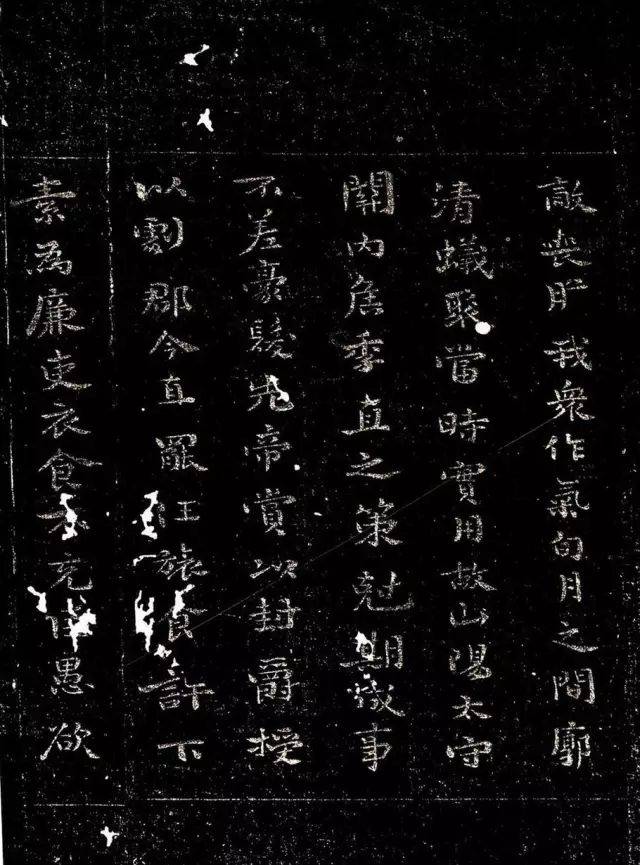 敵喪我衆作氣旬月之間廓
清蟻聚當時實用故山陽太守
關內侯季直之策尅期成事
不差豪髮先帝賞以封爵授
以劇郡今直罷任旅食許下
素爲廉吏衣食不充臣愚欲